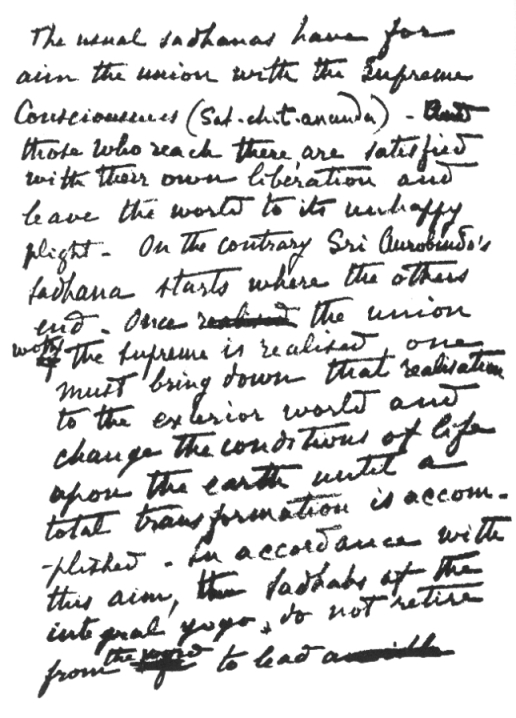 The usual sadhanas have for
aim the union with the Supreme
Consciousness (Sat-chit-ananda) - And
those who reach there, are satisfied
with their own liberation and
leave the world to its unhappy
plight - On the contrary Sri Aurobindo's
sadhana starts where the others
end - Once realised the union
with the Supreme is realised one
must bring down that realisation
to the exterior world and
change the conditions of life
upon the earth until a
total transformation is accom-
-plished - In accordance with
this aim, the sadhaks of the
integral yoga do not retire
from the world to lead a